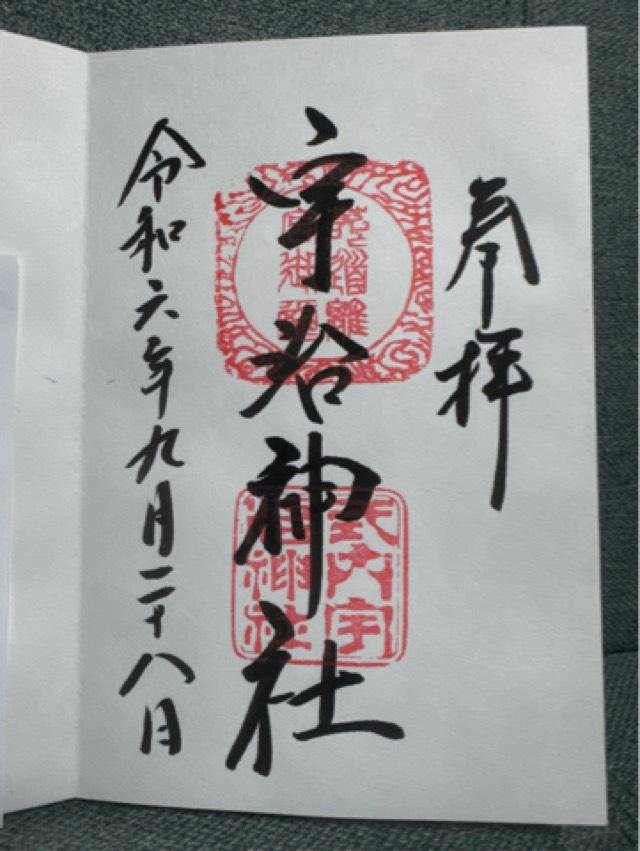 奉拝
宇治神社
令和六年九月二十八日
菟道離
式内宇
治神社